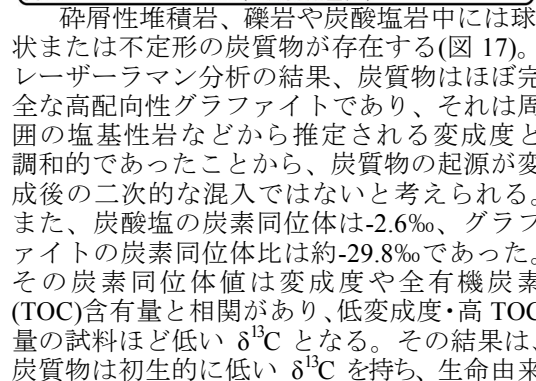 砕屑性堆積岩、礫岩や炭酸塩岩中には球
状または不定形の炭質物が存在する(図 17)。
レーザーラマン分析の結果、炭質物はほぼ完
全な高配向性グラファイトであり、それは周
囲の塩基性岩などから推定される変成度と
調和的であったことから、炭質物の起源が変
成後の二次的な混入ではないと考えられる。
また、炭酸塩の炭素同位体は-2.6‰、グラフ
ァイトの炭素同位体比は約-29.8‰であった。
その炭素同位体値は変成度や全有機炭素
(TOC)含有量と相関があり、低変成度・高 TOC
量の試料ほど低い δ¹³C となる。その結果は、
炭質物は初生的に低い δ¹³C を持ち、生命由来